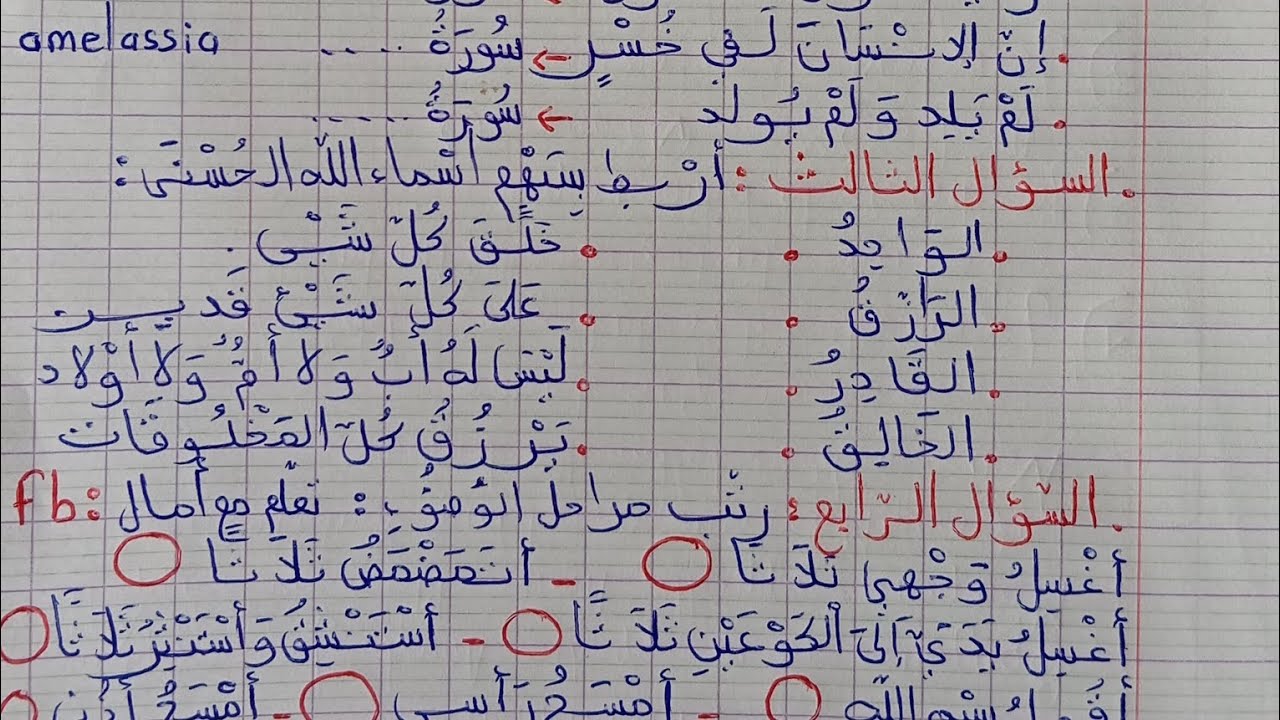 amelassia
. إِنّ الإنْسَانَ لَفِي خُسْرٍ ← سُورَةُ ....
. لَمْ يَلِيد وَلَمْ يُولَد ← سُورَةُ .....
. السؤال الثالث : أرْبط بِسَهْمٍ أَسْماء الله الحُسْنَى :
. الوَاحِدُ . . خَلَقَ كُلّ شَيْء .
. الرَازِقُ . . عَلَىَ كُلّ شَيْء قَدير
. القَادِرُ . . لَيْسَ لَهُ أبٌ وَلا أُمٌّ وَلاَ أَوْلاد
. الخَالِقُ . . يَرْزُقُ كُلّ المَخْلُوقَات
. السّؤال الرّابع : رتّب مراحل الوُضوُء : تعلّم مع أمال :fb
أغْسِلُ وَجْهي ثَلاَثًا - أتمَضْمَضُ ثَلاَثًا
أغْسِلُ يَدَيّ إلَى الكَوْعَيْنِ ثَلاَثًا - أسْتَنْشِقُ وَأسْتَنْثِرُ ثَلاَثًا
الله - أمْسَحُ رَأسي - أمْسَحُ